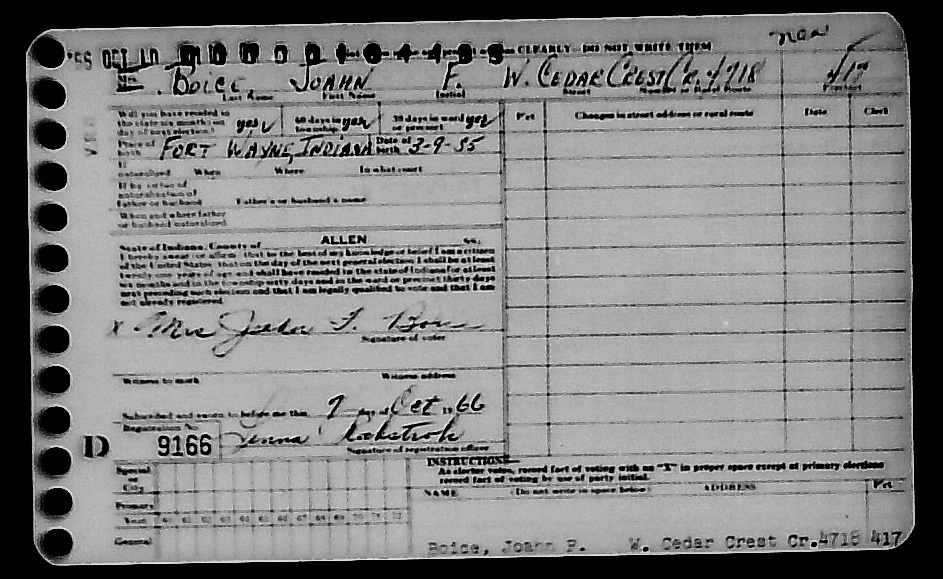 '66 OCT 10 CLEARLY - DO NOT WRITE THEM new
Mrs. BOICE, JOAHN F. W. CEDAR CREST CR. 4718 417
Last Name First Name Initial Street Number or Rural Route Precinct
Will you have resided in the state six months on day of next election? yes 60 days in township? yes 30 days in ward or precinct yes
Pct Changes in street address or rural route Date Clerk
Place of birth FORT WAYNE, INDIANA Date of birth 3-9-35
If naturalized When Where In what court
If by virtue of naturalization of father or husband Father's or husband's name
When and where father or husband naturalized
State of Indiana, County of ALLEN ss:
I hereby swear or affirm that to the best of my knowledge or belief I am a citizen
of the United States, that on the day of the next general election I shall be at least
twenty-one years of age and shall have resided in the state of Indiana for at least
six months and in the township sixty days and in the ward or precinct thirty days
next preceding such election and that I am legally qualified to vote and that I am
not already registered.
X Mrs Joahn F. Boice
Signature of voter
Witness to mark Witness address
Subscribed and sworn to before me this 7 day of Oct 1966
Registration No.
D 9166
Signature of registration officer
Special or City
Primary
Year 60 61 62 63 64 65 66 67 68 69 70 71 72
General
INSTRUCTIONS
As elector votes, record fact of voting with an "X" in proper space except at primary elections
record fact of voting by use of party initial.
NAME (Do not write in space below) ADDRESS Pct
Boice, Joahn F. W. Cedar Crest Cr.4718 417